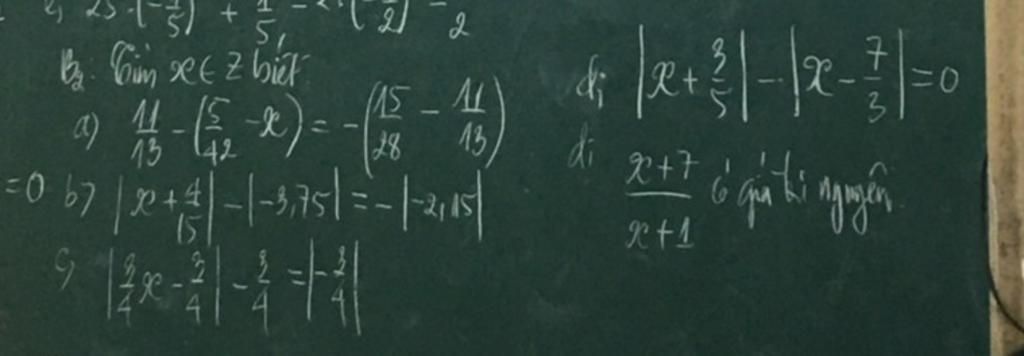 25.(-1/5) + 1/5 - 2.(-1/2) - 2
B2: Tìm x ∈ Z biết:
a) 11/13 - (5/42 - x) = -(15/28 - 11/13)
= 0 b) |x + 4/15| - |-3,75| = -|-2,15|
c, |3/4 x - 3/4| - 3/4 = |-3/4|
d, |x + 3/5| - |x - 7/3| = 0
đ, x+7/x+1 có giá trị nguyên